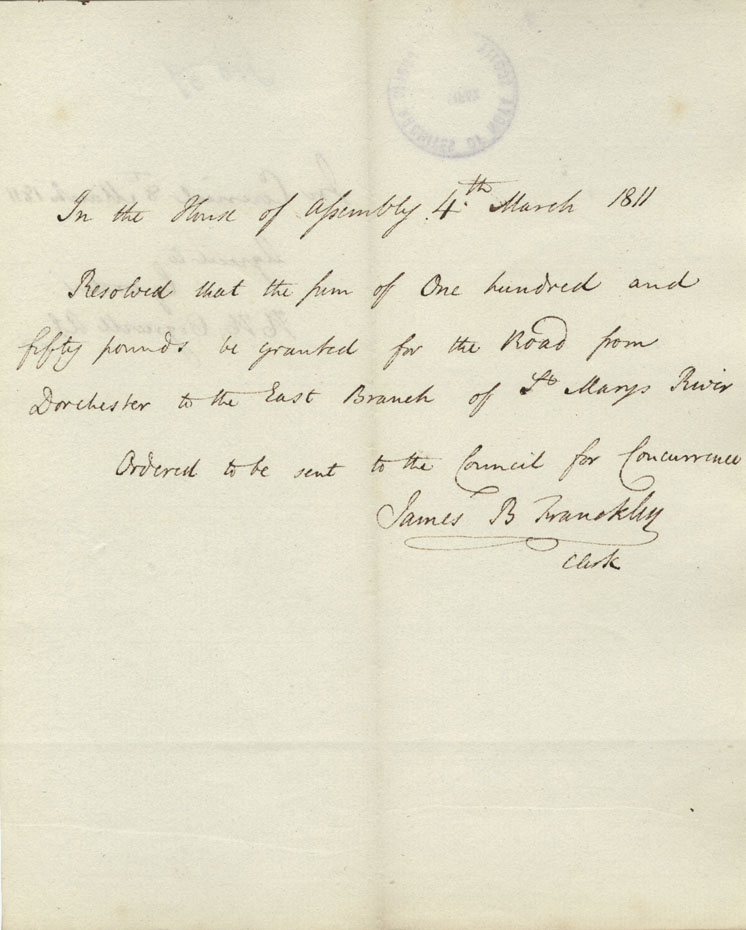 In the House of Assembly 4.th March 1811
Resolved that the sum of One hundred and
fifty pounds be granted for the Road from
Dorchester to the East Branch of St Marys River
Ordered to be sent to the Council for Concurrence
James B Franckliy
Clerk